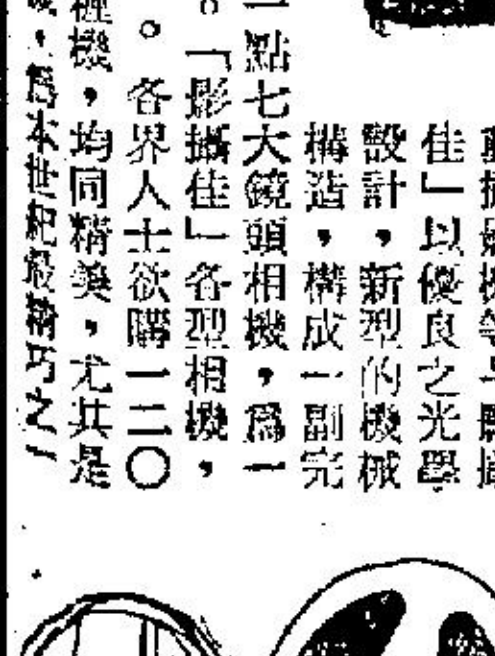 佳」以優良之光學
設計，新型的機械
構造，構成一副完
一點七大鏡頭相機，爲一
。「影攝佳」各型相機，
。各界人士欲購一二〇
機，均同精美，尤其是
，爲本世紀最精巧之一